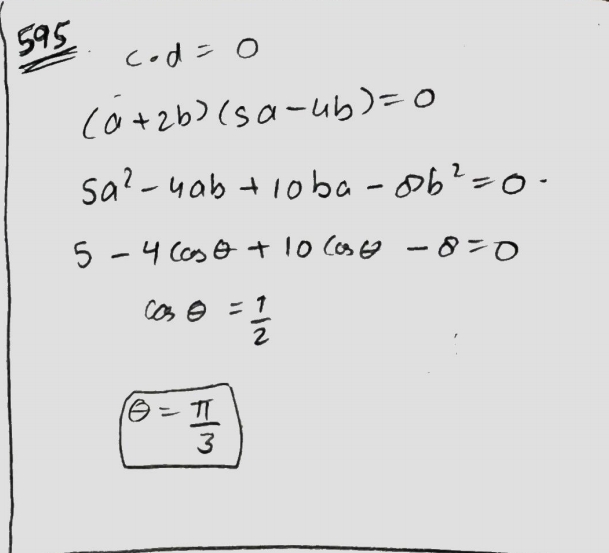 595. c.d = 0
(a+2b)(5a-4b)=0
5a²-4ab+10ba-8b²=0.
5-4cosθ+10cosθ-8=0
cosθ=1/2
θ=π/3